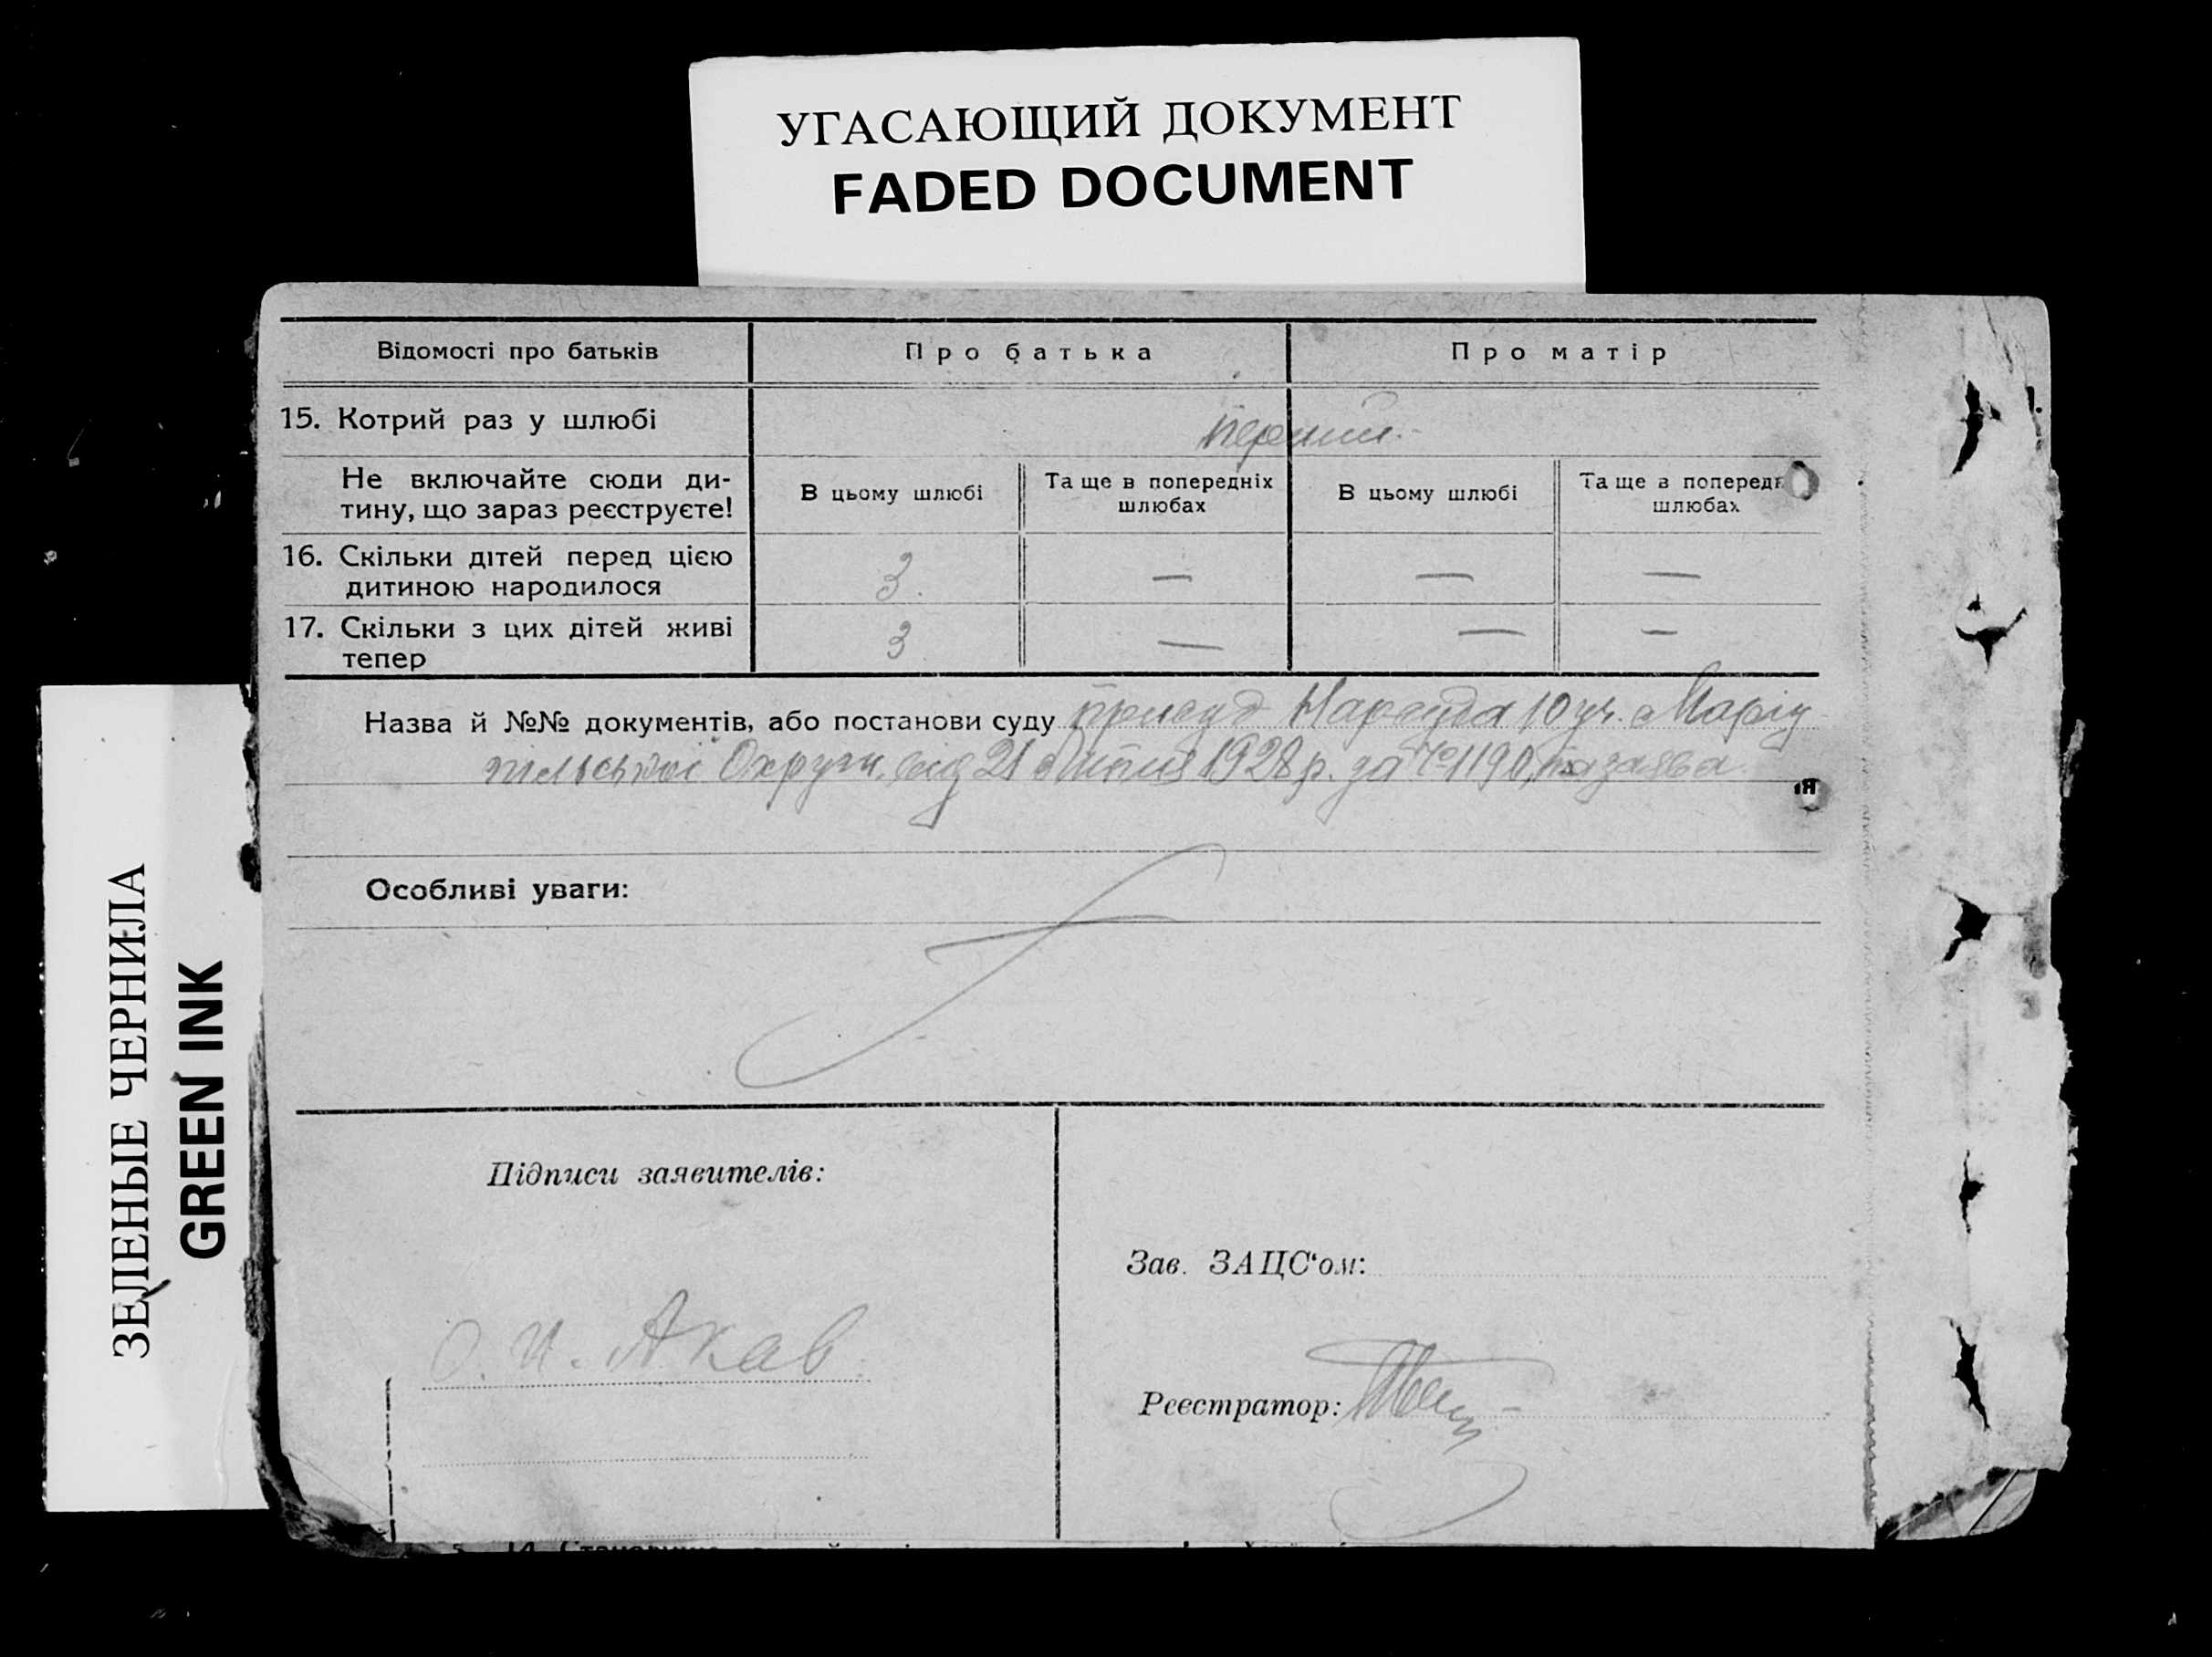 УГАСАЮЩИЙ ДОКУМЕНТ
FADED DOCUMENT
ЗЕЛЕНЫЕ ЧЕРНИЛА
GREEN INK
Відомості про батьків Про батька Про матір
15. Котрий раз у шлюбі перший.
Не включайте сюди ди-
тину, що зараз реєструєте!
В цьому шлюбі
Та ще в попередніх
шлюбах
В цьому шлюбі
Та ще в попередн
шлюбах
16. Скільки дітей перед цією
дитиною народилося
3. — — —
17. Скільки з цих дітей живі
тепер
3 — — —
Назва й №№ документів, або постанови суду присуд Нарсуда 10 уч. Маріу
пільської Округи, від 21 Липня 1928 р. за № 1190, та заява
ія
Особливі уваги:
Підписи заявителів:
О. И. Акав
Зав. ЗАЦС'ом:
Реєстратор: